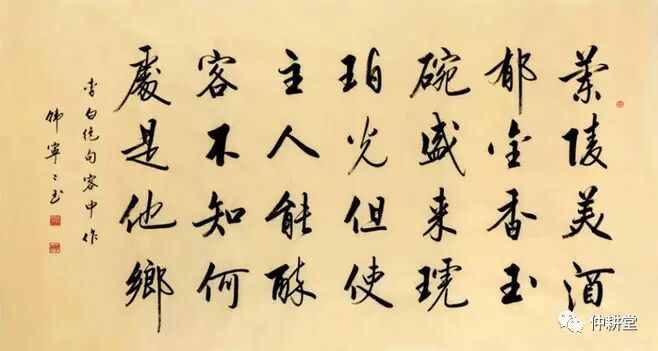 蘭陵美酒
郁金香玉
碗盛来琥
珀光但使
主人能醉
客不知何
處是他鄉
李白绝句客中作
寧〻书
仲耕堂